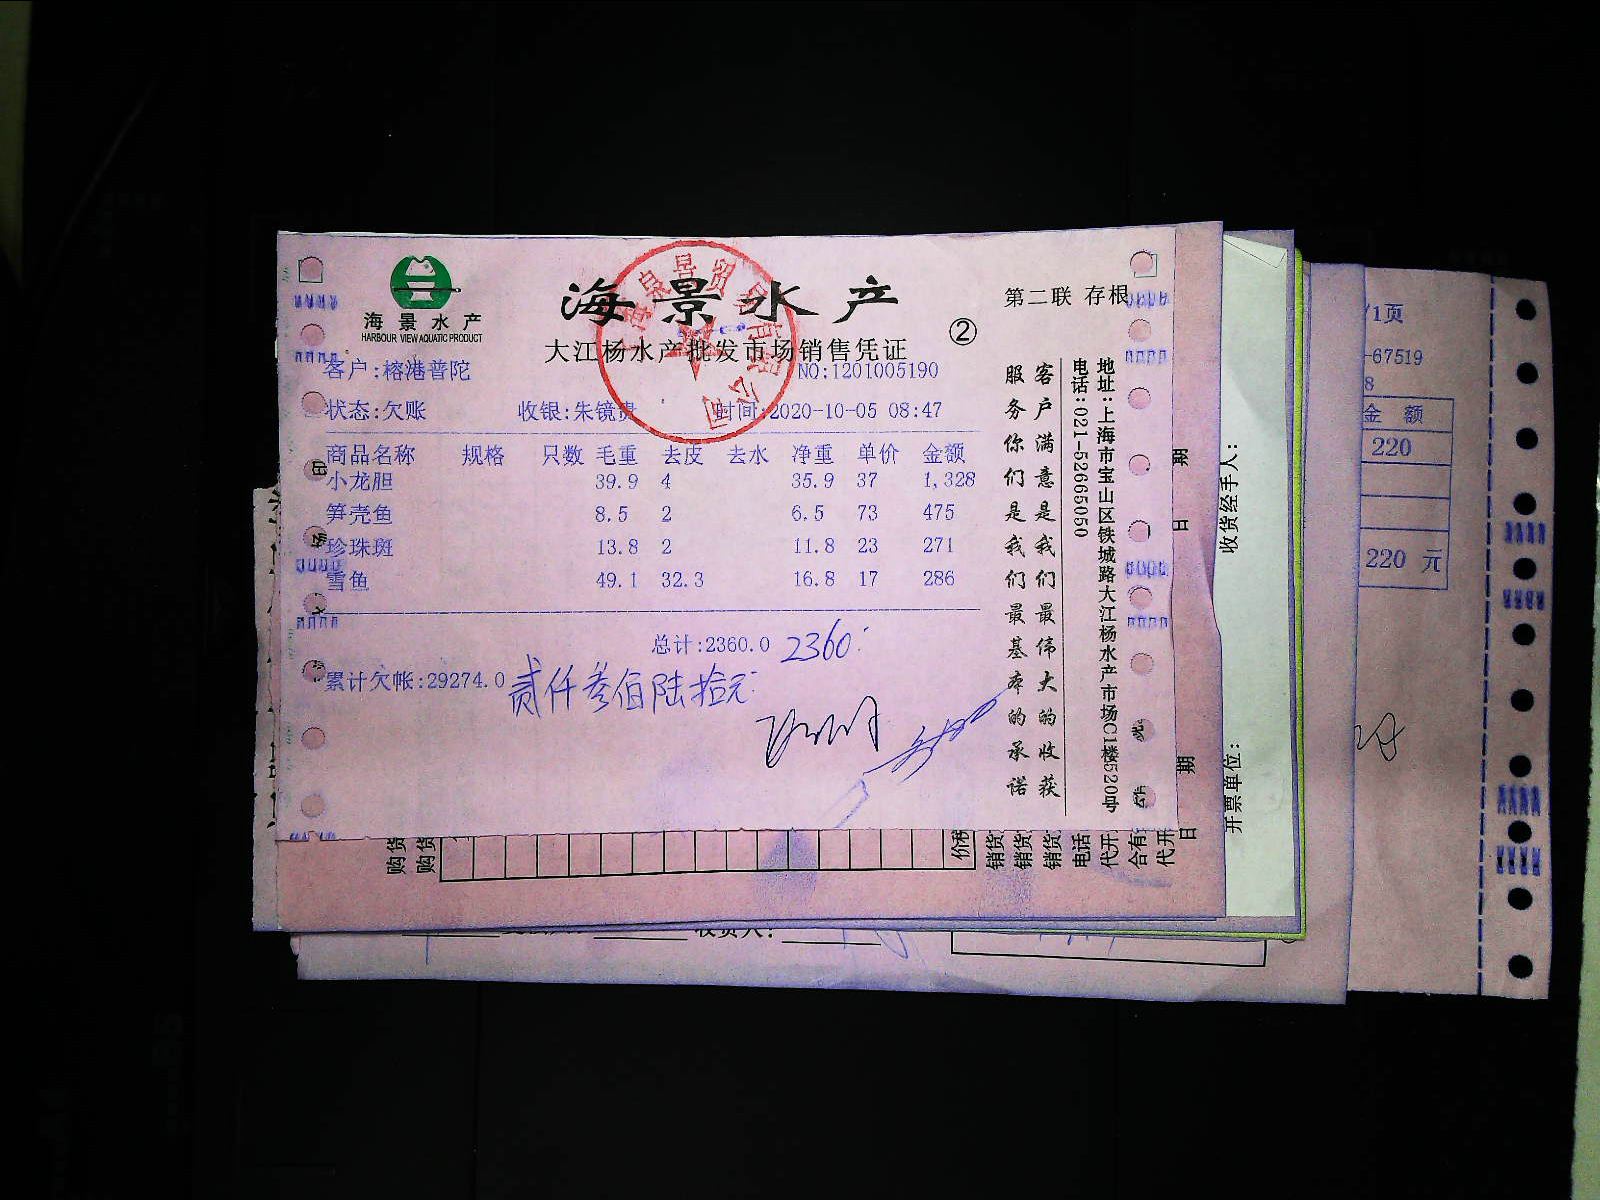 海景水产
HARBOUR VIEW AQUATIC PRODUCT
海景水产
第二联 存根
②
大江杨水产批发市场销售凭证
客户:榕港普陀 NO:1201005190
状态:欠账 收银:朱镜贵 时间:2020-10-05 08:47
商品名称 规格 只数 毛重 去皮 去水 净重 单价 金额
小龙胆 39.9 4 35.9 37 1,328
笋壳鱼 8.5 2 6.5 73 475
珍珠斑 13.8 2 11.8 23 271
雪鱼 49.1 32.3 16.8 17 286
总计:2360.0 2360
累计欠帐:29274.0 贰仟叁佰陆拾元
客户满意是我们最伟大的收获
服务你们是我们最基本的承诺
地址:上海市宝山区铁城路大江杨水产市场C1楼520号
电话:021-52665050
期
日
期
日
收货经手人:
开票单位:
购货
购货
价税
销货
销货
销货
电话
代开
合有
代开
收货人:
/1页
-67519
8
金 额
220
220 元